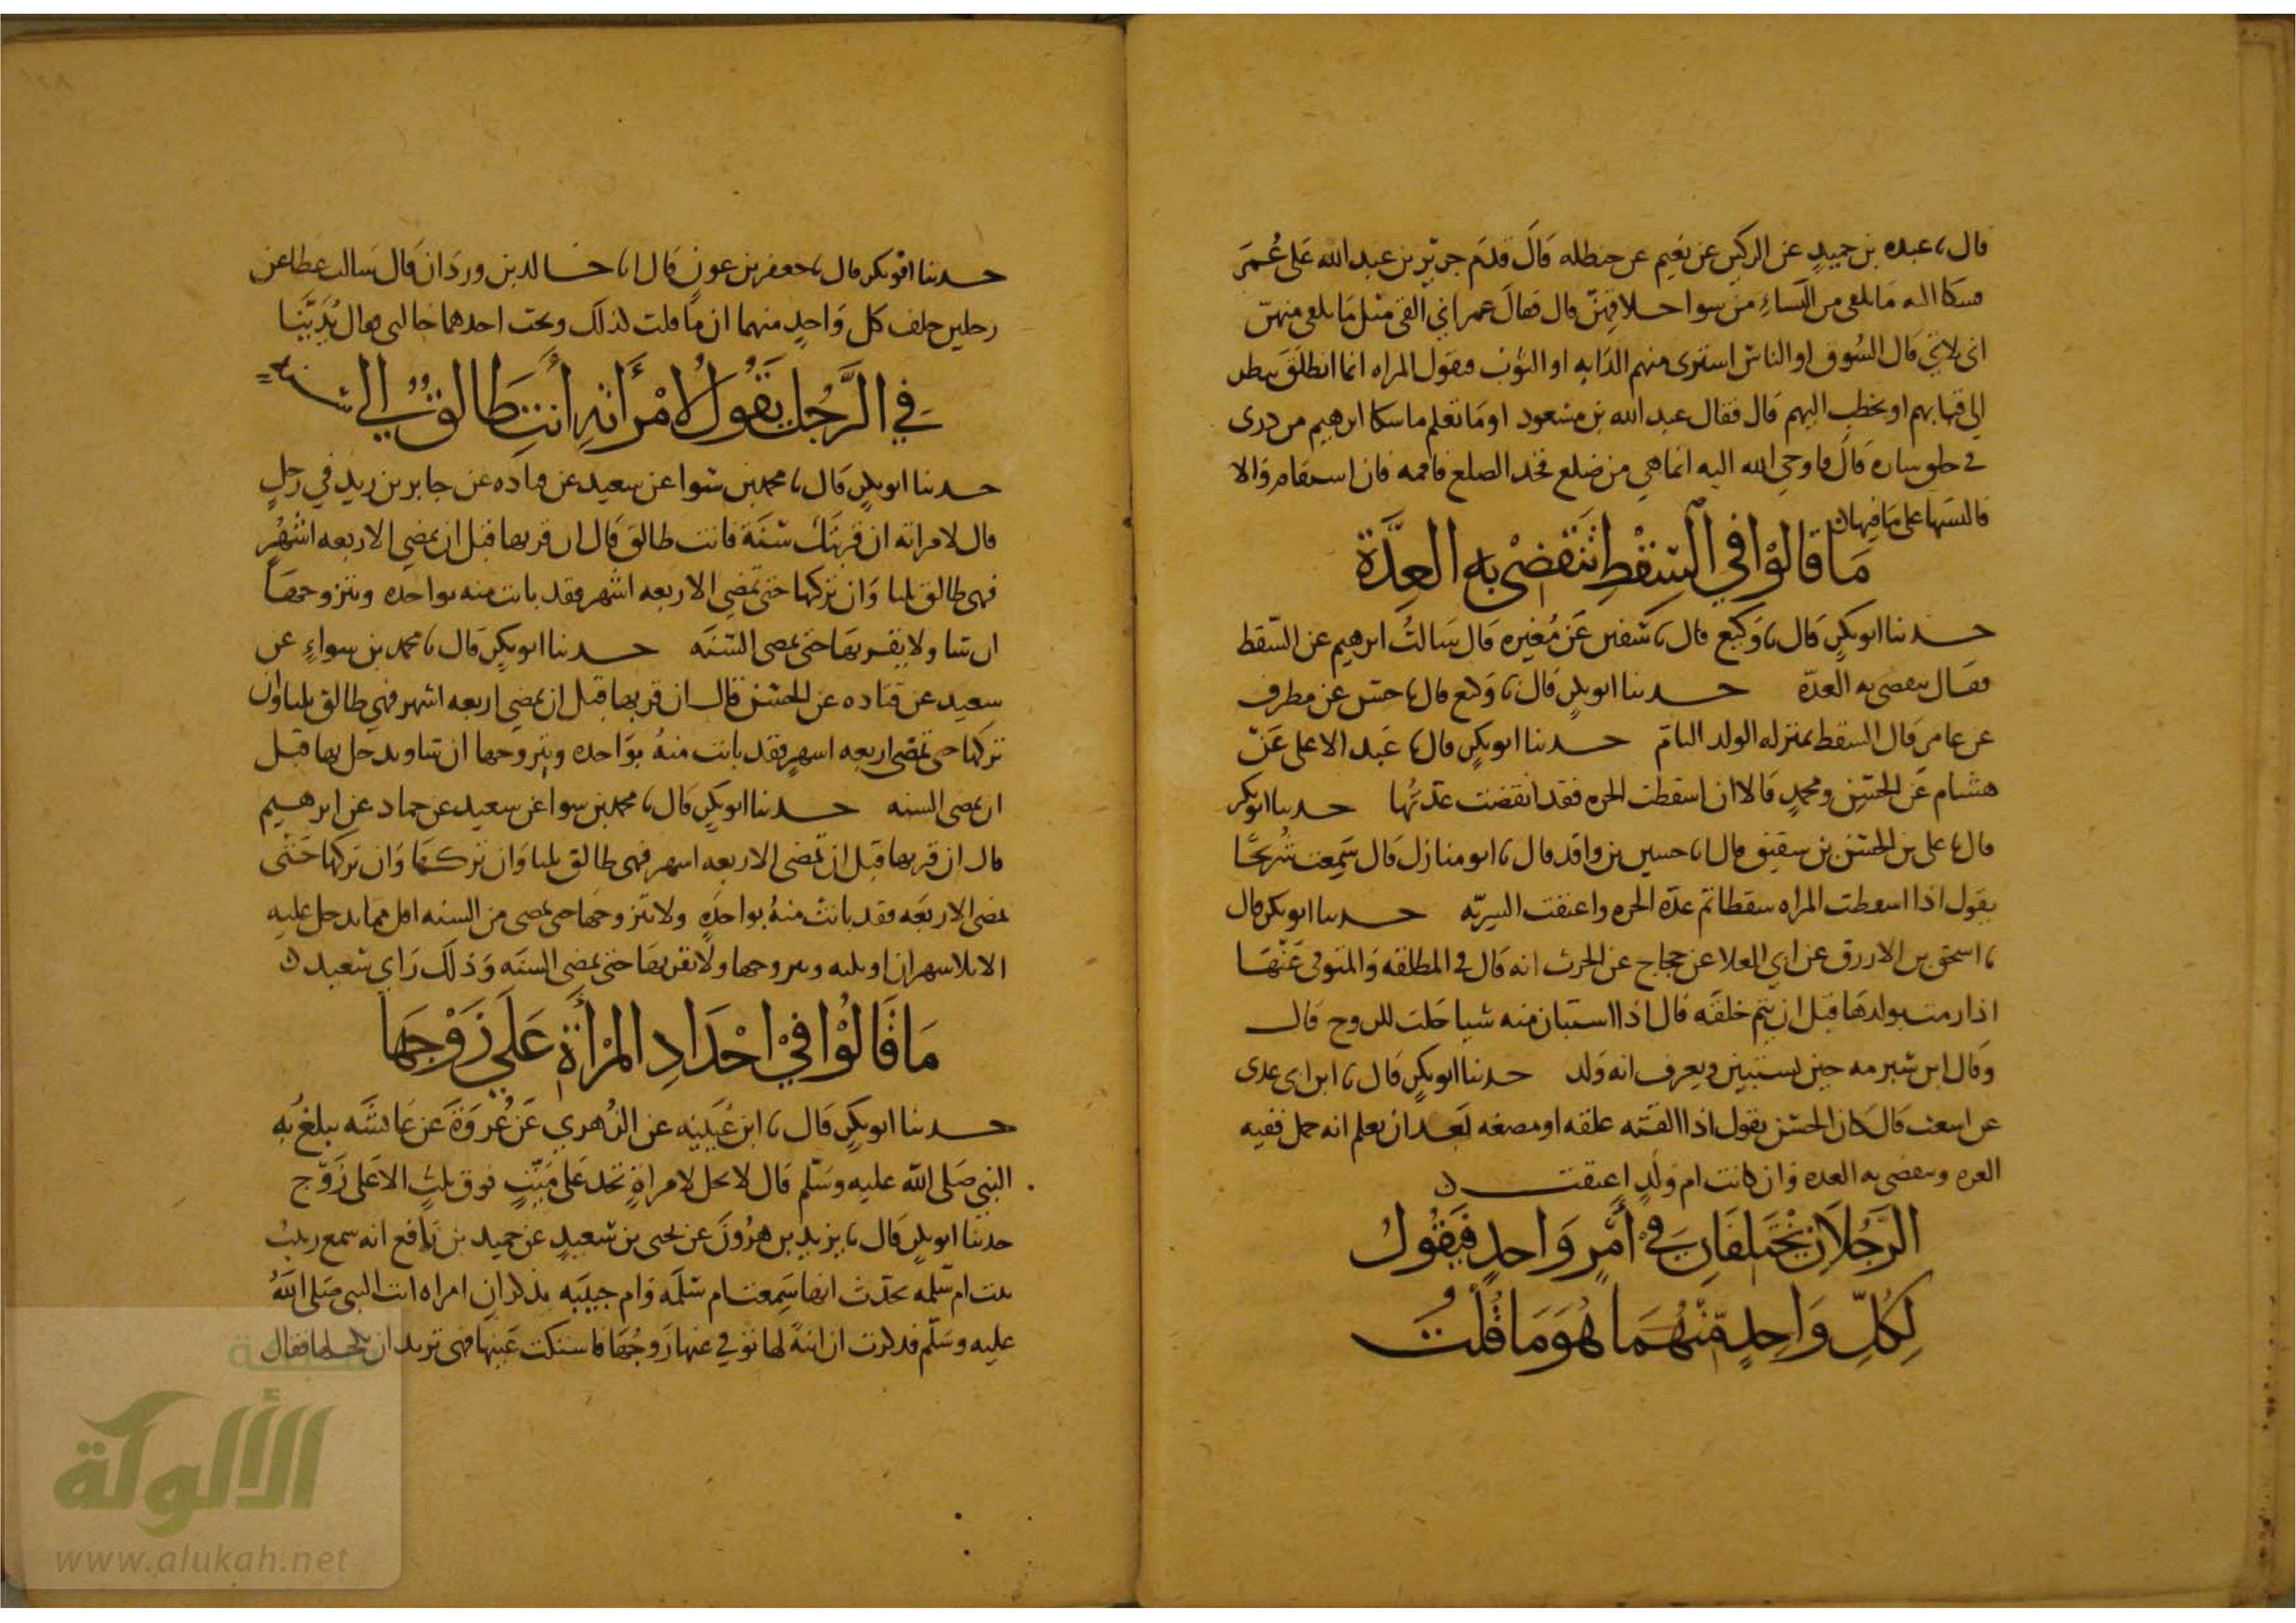 قال ىا عبده بن حميد عن الركين عن نعيم عن حنظله قال قدم جرير بن عبد الله على عمر
فسكا اليه ما يلقى من النساء من سوا خلاقهن قال فقال عمر اني القى مثل ما يلقى منهن
اني لاتي قال السوق او الناس اسنرى منهم الدابه او الثوب فتقول المراه انما انطلق ينظر
الى فتياتهم او يخطب اليهم قال فقال عبد الله بن مسعود او ما تعلم ما سكا ابرهيم من درى
في خلو ساره قال فاوحى الله اليه انما هي من ضلع فخد الضلع فاقمه فان استقام والا
فالبسها على ما فيها
مَا قَالُوْا في السِّقْطِ تَنْقَضِىْ بِهِ العِدَّة
حدثنا ابو بكرٍ قال ىا وكيع قال ىا سفين عن مُغيره قال سالتُ ابرهيم عن السقط
فقال تنقضى به العدّه حدثنا ابو بكرٍ قال ىا وكيع قال ىا حسن عن مطرف
عن عامر قال السقط بمنزله الولد التامّ حدثنا ابو بكرٍ قال ىا عَبد الاعلى عَن
هشام عن الحسن ومحمدٍ قالا ان اسقطت الحره فقد انقضت عدّتُها حدثنا ابو بكر
قال ىا على بن الحسن بن سقيق قال ىا حسين بن واقد قال ىا ابو منازل قال سَمعت شُريحًا
يقول اذا اسقطت المراه سقطا تم عدّه الحره واعتقت السريّه حدثنا ابو بكر قال
ىا اسحق بن الازرق عن ابى العلا عن حجاج عن الحرث انه قال في المطلقه والمتوفى عنها
اذا رمت بولدها قبل ان يتم خلقه قال اذا استبان منه شيا حلت للزوج قال
وقال ابن شبرمه حين يستبين ويعرف انه ولد حدثنا ابو بكرٍ قال ىا ابن ابى عدى
عن اشعث قال كان الحسن يقول اذا القته علقه او مضغه بعد ان يعلم انه حمل ففيه
الغره وتنقضى به العده وان كانت ام ولدٍ اعتقت
الرَّجُلاَنِ يَخْتَلفَانِ في أَمْرٍ وَاحدٍ فَيَقُولُ
لِكُلِّ وَاحِدٍ مّنْهُمَا هُوَ مَا قُلْتُ
حدثنا ابو بكر قال ىا جعفر بن عون قال اىا خالد بن وردان قال سالت عطا عن
رجلين حلف كل واحدٍ منهما ان ما قلت لذلك وتحت احدهما خالتى فقال يُدَيَّنَا
في الرَّجُلِ يَقُولُ لامْرَأَتهِ أَنتِ طَالقٌ الى سنة
حدثنا ابو بكرٍ قال ىا محمد بن سوا عن سعيد عن قتاده عن جابر بن زيد في رجلٍ
قال لامراته ان قربتك سَنة فانت طالق قال ان قربها قبل ان تمضى الاربعه اشهُرٍ
فهى طالق ثلثا وان تركها حتى تمضى الاربعه اشهر فقد بانت منه بواحده ويتزوجها
ان شا ولا يقربها حتى تمضى السّنَه حدثنا ابو بكرٍ قال ىا محمد بن سواءٍ عن
سعيد عن قتاده عن الحسن قال ان قربها قبل ان تمضى اربعه اشهر فهي طالق ثلثا وان
تركها حتى تمضى اربعه اشهرٍ فقد بانت منهُ بواحده ويتزوجها ان شا ويدخل بها قبل
ان تمضى السنه حدثنا ابو بكرٍ قال ىا محمد بن سوا عن سعيد عن حماد عن ابرهيم
قال ان قربها قبل ان تمضى الاربعه اشهر فهى طالق ثلثا وان تركها وان تركها حتى
تمضى الاربعَه فقد بانت منهُ بواحدهٍ ولا يتزوجها حتى تمضى من السنه اقل مما يدخل عليه
الايلا شهران او ثلثه ويتزوجها ولا يقربها حتى تمضى السنَه وَذلك رَاي سَعيد
مَا قَالُوْا فيْ احْدَادِ المَرْأَةِ عَلَى زَوْجِهَا
حدثنا ابو بكرٍ قال ىا ابن عُيَينه عن الزُهري عَن عُروَةَ عَن عَائشَه يبلغ بهِ
النبي صَلى الله عليه وسَلم قال لا يحل لامراةٍ تحد على مَيّتٍ فوق ثلثٍ الا على زوج
حدثنا ابو بكرٍ قال ىا يزيد بن هرُونَ عن يحيى بن سَعيدٍ عن حميد بن نافع انه سمع زينب
بنت ام سَلمه تحدّث انها سَمِعت ام سَلمَه وَام حبيبَه تذكران امراه اتت النبى صَلى اللهُ
عليه وسَلّم فذكرت ان ابنةً لها توفي عنها زَوجُهَا فاستكت عَينها فهى تريد ان تكحلها فقال
الألوكة
www.alukah.net